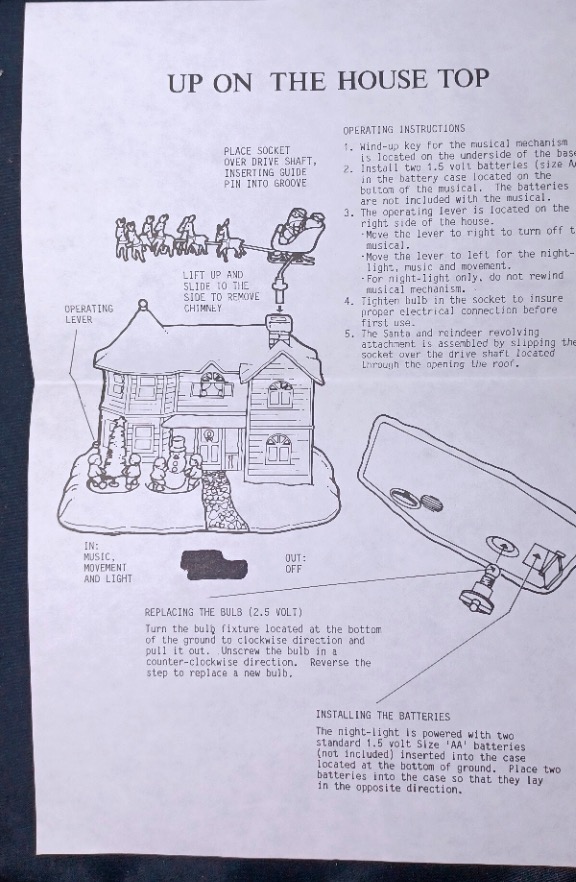 UP ON THE HOUSE TOP
PLACE SOCKET
OVER DRIVE SHAFT,
INSERTING GUIDE
PIN INTO GROOVE
LIFT UP AND
SLIDE TO THE
SIDE TO REMOVE
CHIMNEY
OPERATING
LEVER
OPERATING INSTRUCTIONS
1. Wind-up key for the musical mechanism
is located on the underside of the base
2. Install two 1.5 volt batteries (size AA
in the battery case located on the
bottom of the musical. The batteries
are not included with the musical.
3. The operating lever is located on the
right side of the house.
·Move the lever to right to turn off t
musical.
·Move the lever to left for the night-
light, music and movement.
·For night-light only, do not rewind
musical mechanism.
4. Tighten bulb in the socket to insure
proper electrical connection before
first use.
5. The Santa and reindeer revolving
attachment is assembled by slipping the
socket over the drive shaft located
through the opening the roof.
IN:
MUSIC,
MOVEMENT
AND LIGHT
OUT:
OFF
REPLACING THE BULB (2.5 VOLT)
Turn the bulb fixture located at the bottom
of the ground to clockwise direction and
pull it out. Unscrew the bulb in a
counter-clockwise direction. Reverse the
step to replace a new bulb.
INSTALLING THE BATTERIES
The night-light is powered with two
standard 1.5 volt Size 'AA' batteries
(not included) inserted into the case
located at the bottom of ground. Place two
batteries into the case so that they lay
in the opposite direction.